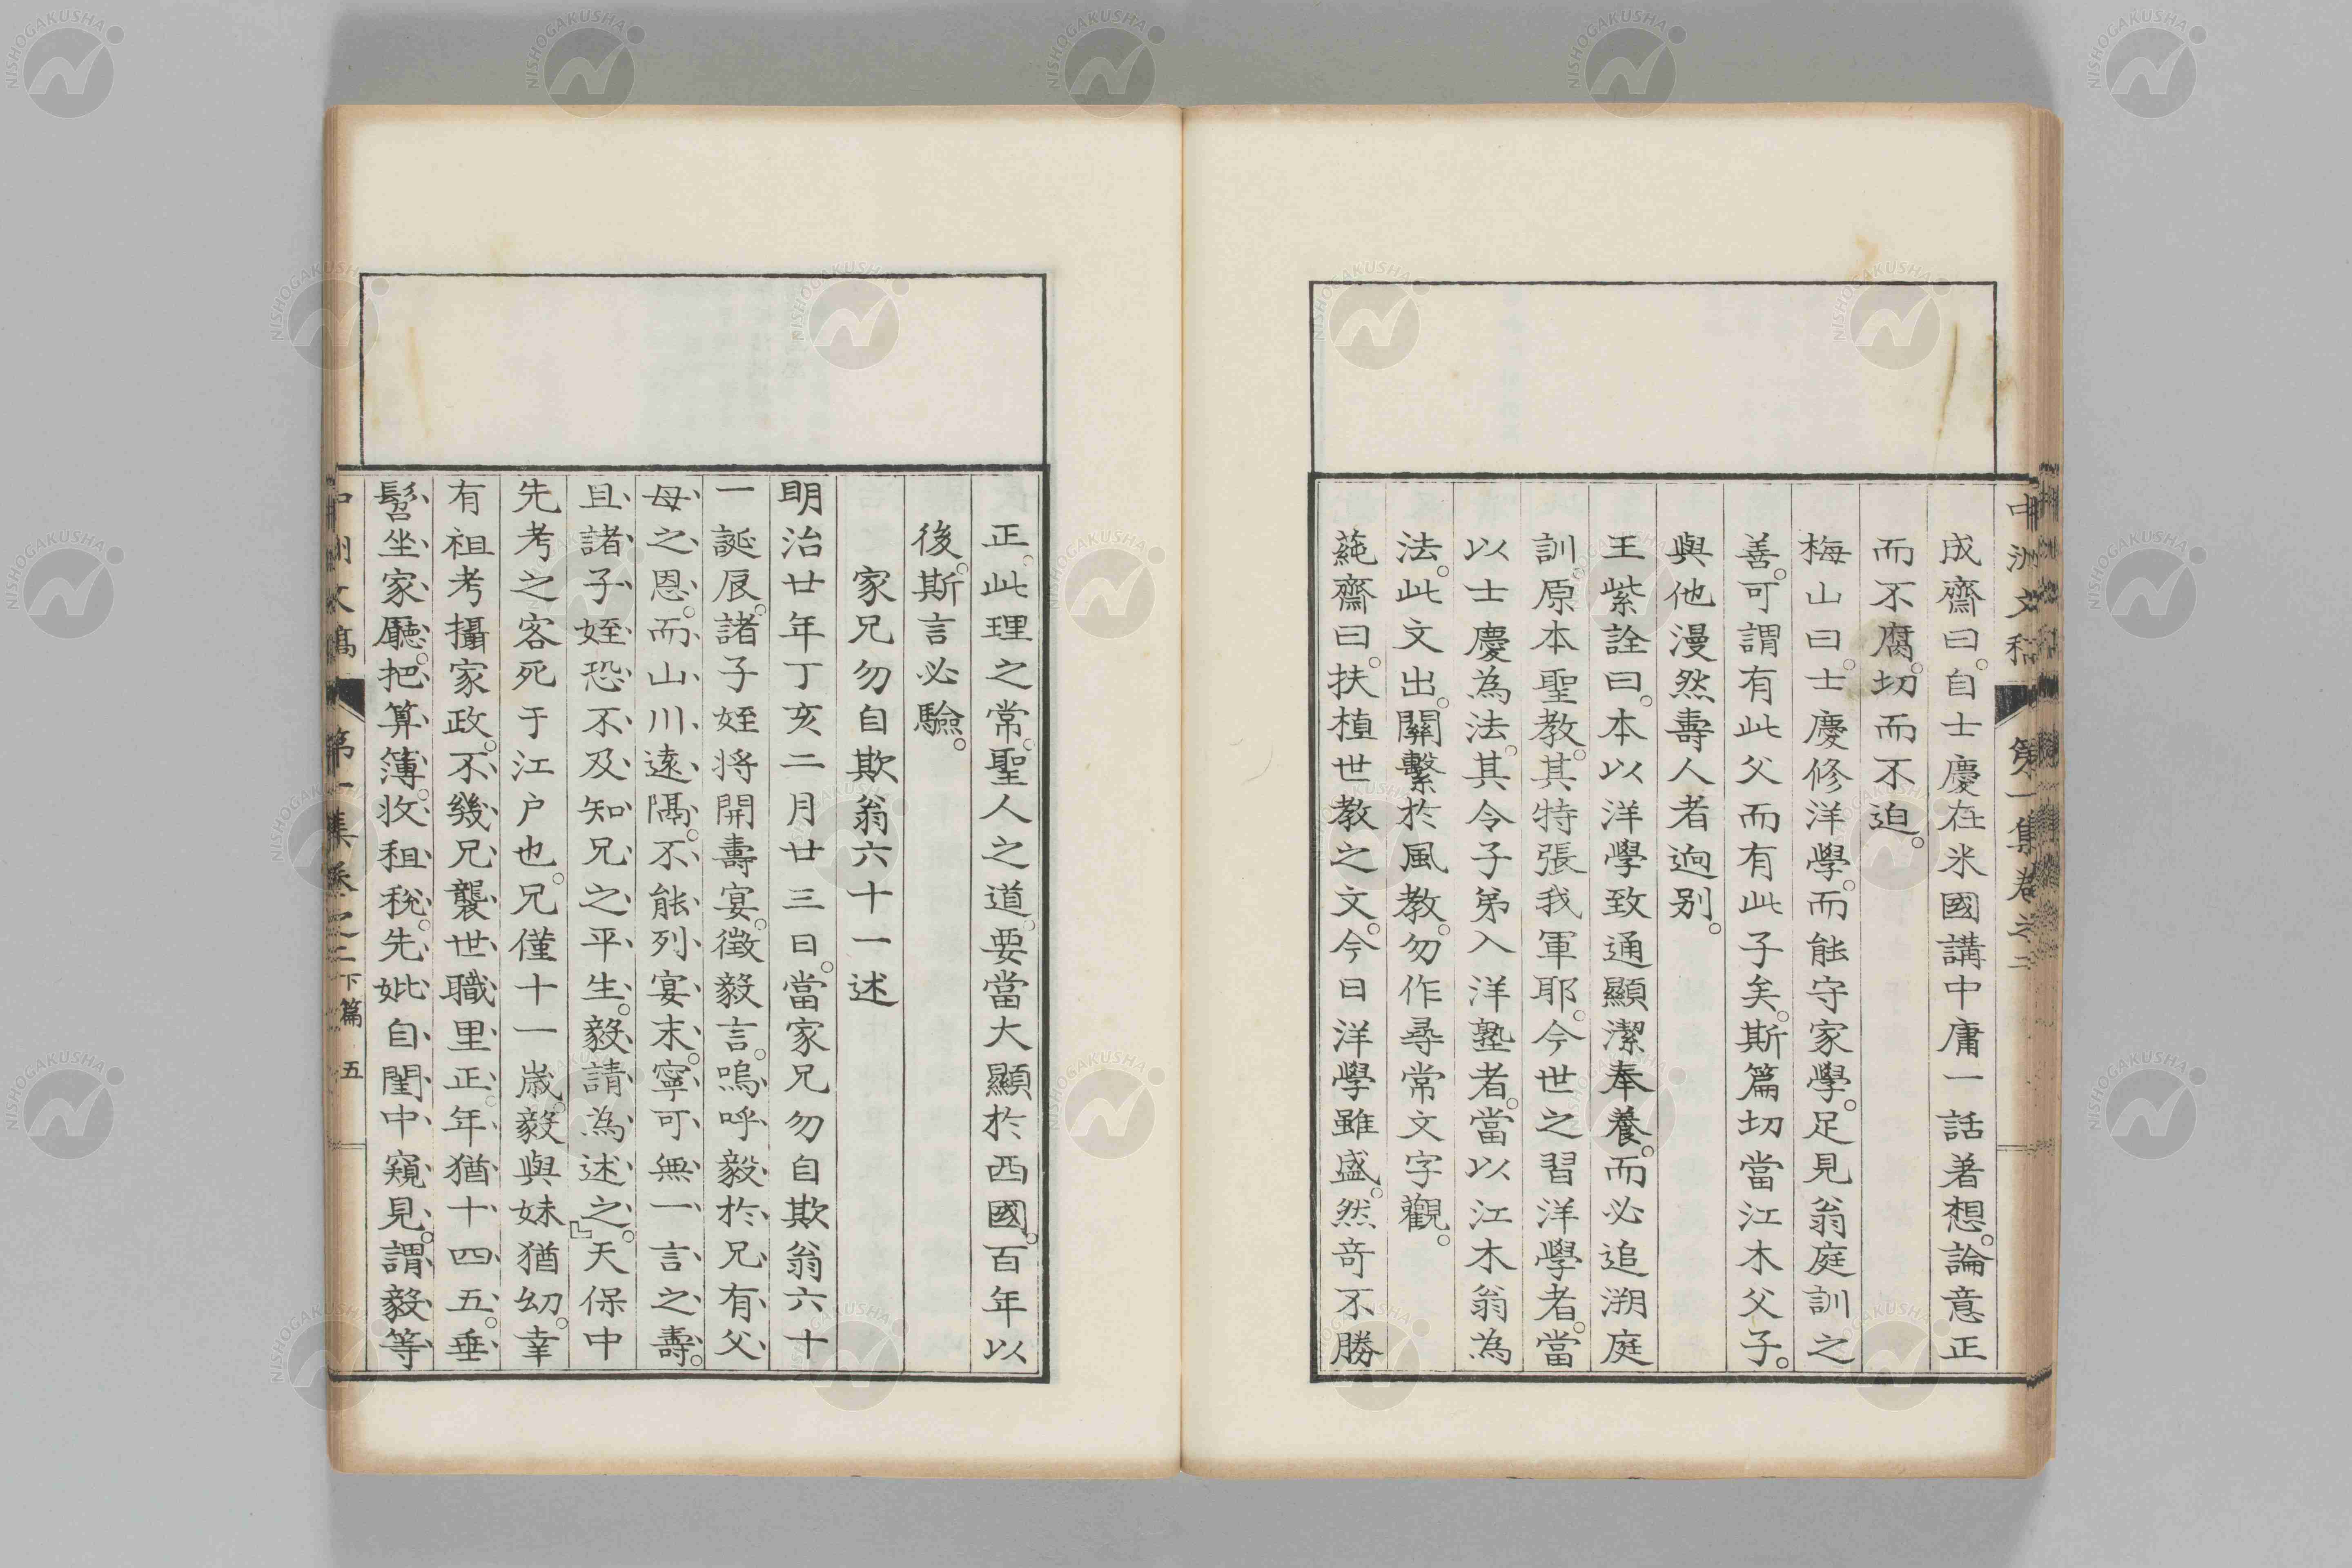 成齋曰。自士慶在米國講中庸一話著想。論意正
而不腐。切而不迫。
梅山曰。士慶修洋學。而能守家學。足見翁庭訓之
善。可謂有此父而有此子矣。斯篇切當江木父子。
與他漫然壽人者逈别。
王紫詮曰。本以洋學致通顯潔奉養。而必追溯庭
訓。原本聖教。其特張我軍耶。今世之習洋學者。當
以士慶為法。其令子弟入洋塾者。當以江木翁為
法。此文出。關繫於風教。勿作尋常文字觀。
蒓齋曰。扶植世教之文。今日洋學雖盛。然竒不勝
正。此理之常。聖人之道。要當大顯於西國。百年以
後。斯言必驗。
家兄勿自欺翁六十一述
明治廿年丁亥二月廿三日。當家兄勿自欺翁六十
一誕辰。諸子姪将開壽宴。徴毅言。嗚呼毅於兄有父
母之恩。而山川遠隔。不能列宴末。寧可無一言之壽。
且諸子姪恐不及知兄之平生。毅請為述之。天保中
先考之客死于江户也。兄僅十一歳。毅與妹猶幼。幸
有祖考攝家政。不幾兄襲世職里正。年猶十四五。垂
髫坐家廳。把算簿。收租稅。先妣自閨中窺見。謂毅等
中洲文稿 第一集卷之二
第一集卷之二下篇 五
NISHOGAKUSHA